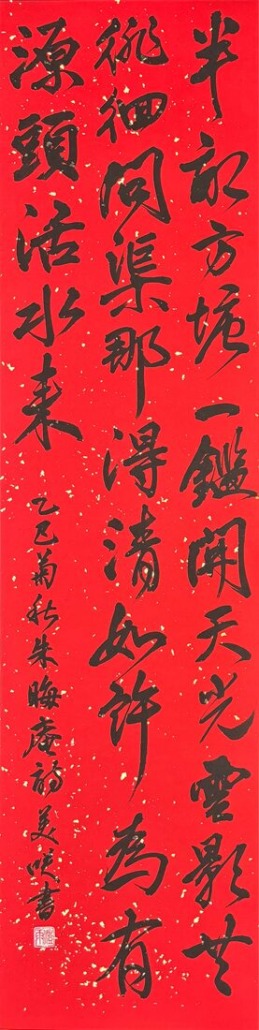 半畝方塘一鑑開天光雲影共
徘徊問渠那得清如許為有
源頭活水來
乙巳菊秋朱晦庵詩美咲書